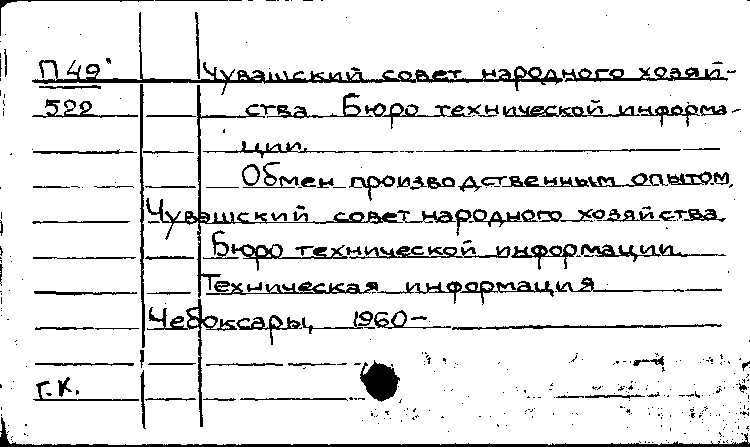 П 49 Чувашский совет народного хозяй-
522 ства. Бюро технической информа-
ции.
Обмен производственным опытом.
Чувашский совет народного хозяйства.
Бюро технической информации.
Техническая информация
Чебоксары, 1960-
Г.К.